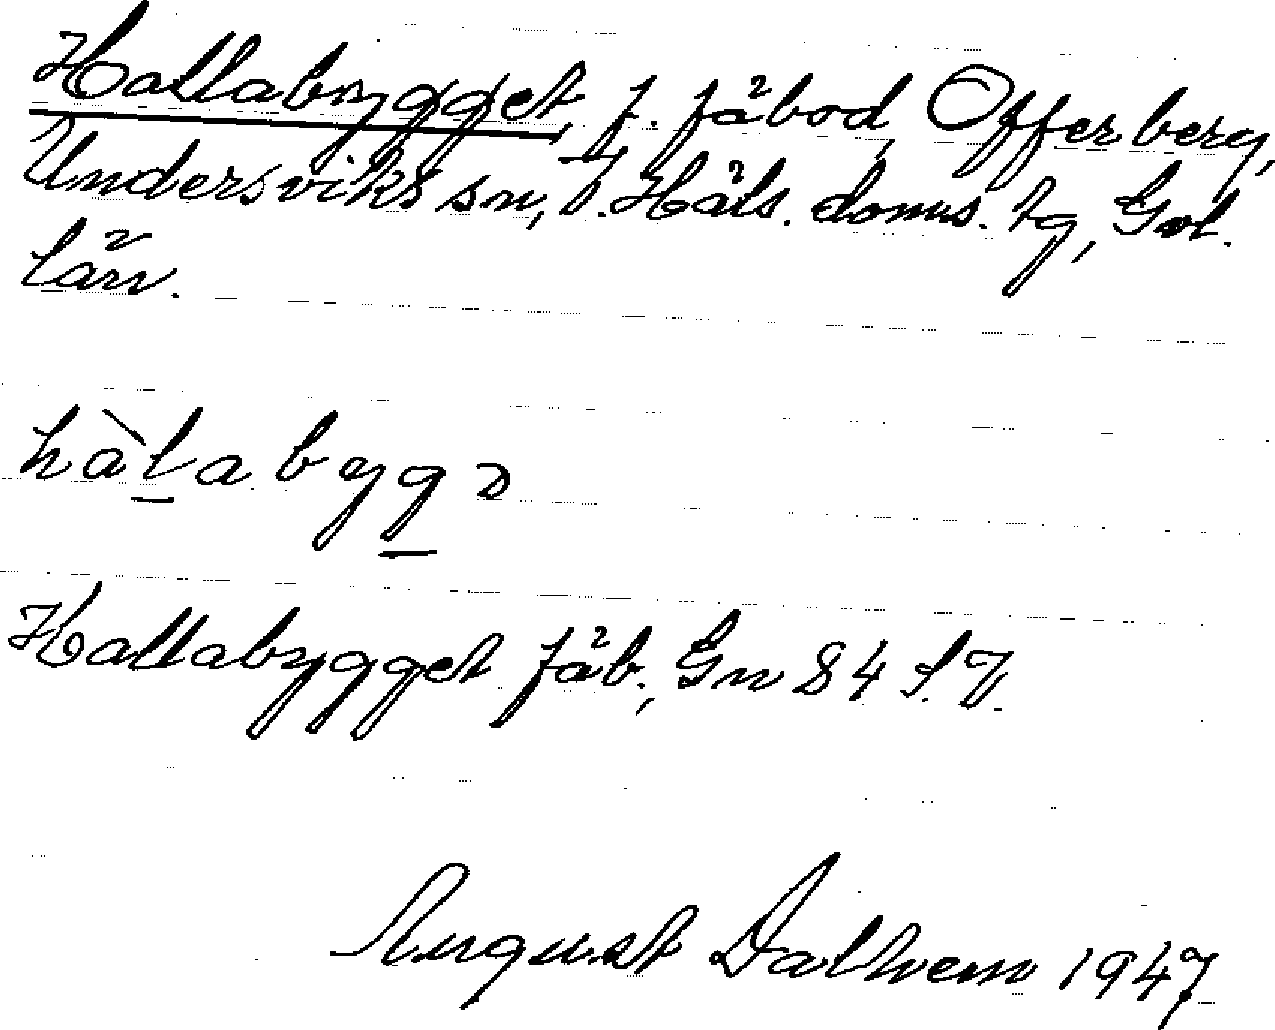 Hallabygget, f. fäbod, Offerberg,
Undersviks sn, V. Häls. doms. tg, Gvl.
län.
hàl̲abyg̲ə
Hallabygget fäb., Gn 84 S.V.
August Dalhem 1947